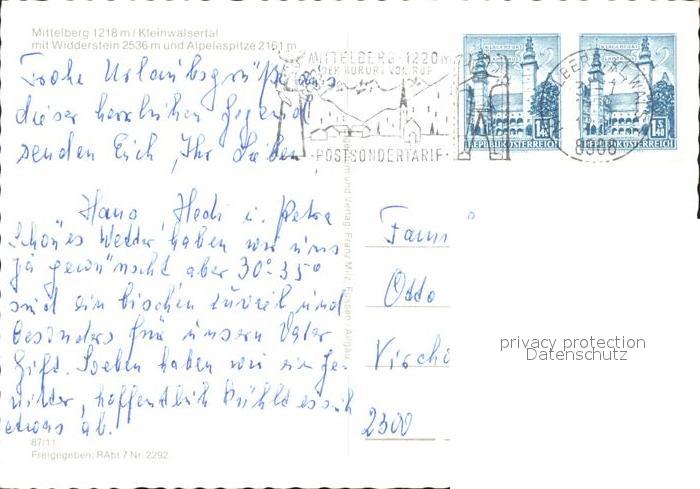 Mittelberg 1218 m / Kleinwalsertal
mit Widderstein 2536 m und Alpelespitze 2161 m
MITTELBERG · 1220 m
DER KURORT VON RUF
· POSTSONDERTARIF ·
REPUBLIK ÖSTERREICH
REPUBLIK ÖSTERREICH
Frohe Urlaubsgrüße aus
dieser herrlichen Gegend
senden Euch, Ihr Lieben
Hans, Hedi u. Petra
Schönes Wetter haben wir uns
ja gewünscht aber 30°-35°
sind ein bischen zuviel und
besonders für unsern Vater
Gift. Soeben haben wir ein Ge-
witter, hoffentlich kühlt es sich
etwas ab.
Fami
Otto
Virch
2300
privacy protection
Datenschutz
87/11
Freigegeben: RAbt 7 Nr. 2292